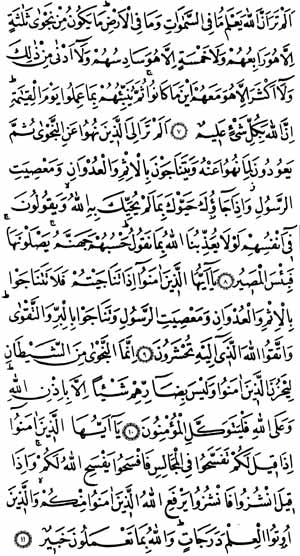 اَلَمْ تَرَ اَنَّ اللّٰهَ يَعْلَمُ مَا فِى السَّمٰوَاتِ وَمَا فِى الْاَرْضِ مَا يَكُونُ مِنْ نَجْوٰى ثَلٰثَةٍ
اِلَّا هُوَ رَابِعُهُمْ وَلَا خَمْسَةٍ اِلَّا هُوَ سَادِسُهُمْ وَلَا اَدْنٰى مِنْ ذٰلِكَ
وَلَا اَكْثَرَ اِلَّا هُوَ مَعَهُمْ اَيْنَ مَا كَانُوا ثُمَّ يُنَبِّئُهُمْ بِمَا عَمِلُوا يَوْمَ الْقِيٰمَةِ
اِنَّ اللّٰهَ بِكُلِّ شَىْءٍ عَلِيمٌ ٧ اَلَمْ تَرَ اِلَى الَّذِينَ نُهُوا عَنِ النَّجْوٰى ثُمَّ
يَعُودُونَ لِمَا نُهُوا عَنْهُ وَيَتَنَاجَوْنَ بِالْاِثْمِ وَالْعُدْوَانِ وَمَعْصِيَتِ
الرَّسُولِ وَاِذَا جَاؤُكَ حَيَّوْكَ بِمَا لَمْ يُحَيِّكَ بِهِ اللّٰهُ وَيَقُولُونَ
فِى اَنْفُسِهِمْ لَوْلَا يُعَذِّبُنَا اللّٰهُ بِمَا نَقُولُ حَسْبُهُمْ جَهَنَّمُ يَصْلَوْنَهَا
فَبِئْسَ الْمَصِيرُ ٨ يَا اَيُّهَا الَّذِينَ اٰمَنُوا اِذَا تَنَاجَيْتُمْ فَلَا تَتَنَاجَوْا
بِالْاِثْمِ وَالْعُدْوَانِ وَمَعْصِيَتِ الرَّسُولِ وَتَنَاجَوْا بِالْبِرِّ وَالتَّقْوٰى
وَاتَّقُوا اللّٰهَ الَّذِى اِلَيْهِ تُحْشَرُونَ ٩ اِنَّمَا النَّجْوٰى مِنَ الشَّيْطَانِ
لِيَحْزُنَ الَّذِينَ اٰمَنُوا وَلَيْسَ بِضَارِّهِمْ شَيْئًا اِلَّا بِاِذْنِ اللّٰهِ
وَعَلَى اللّٰهِ فَلْيَتَوَكَّلِ الْمُؤْمِنُونَ ١٠ يَا اَيُّهَا الَّذِينَ اٰمَنُوا
اِذَا قِيلَ لَكُمْ تَفَسَّحُوا فِى الْمَجَالِسِ فَافْسَحُوا يَفْسَحِ اللّٰهُ لَكُمْ وَاِذَا
قِيلَ انْشُزُوا فَانْشُزُوا يَرْفَعِ اللّٰهُ الَّذِينَ اٰمَنُوا مِنْكُمْ وَالَّذِينَ
اُوتُوا الْعِلْمَ دَرَجَاتٍ وَاللّٰهُ بِمَا تَعْمَلُونَ خَبِيرٌ ١١